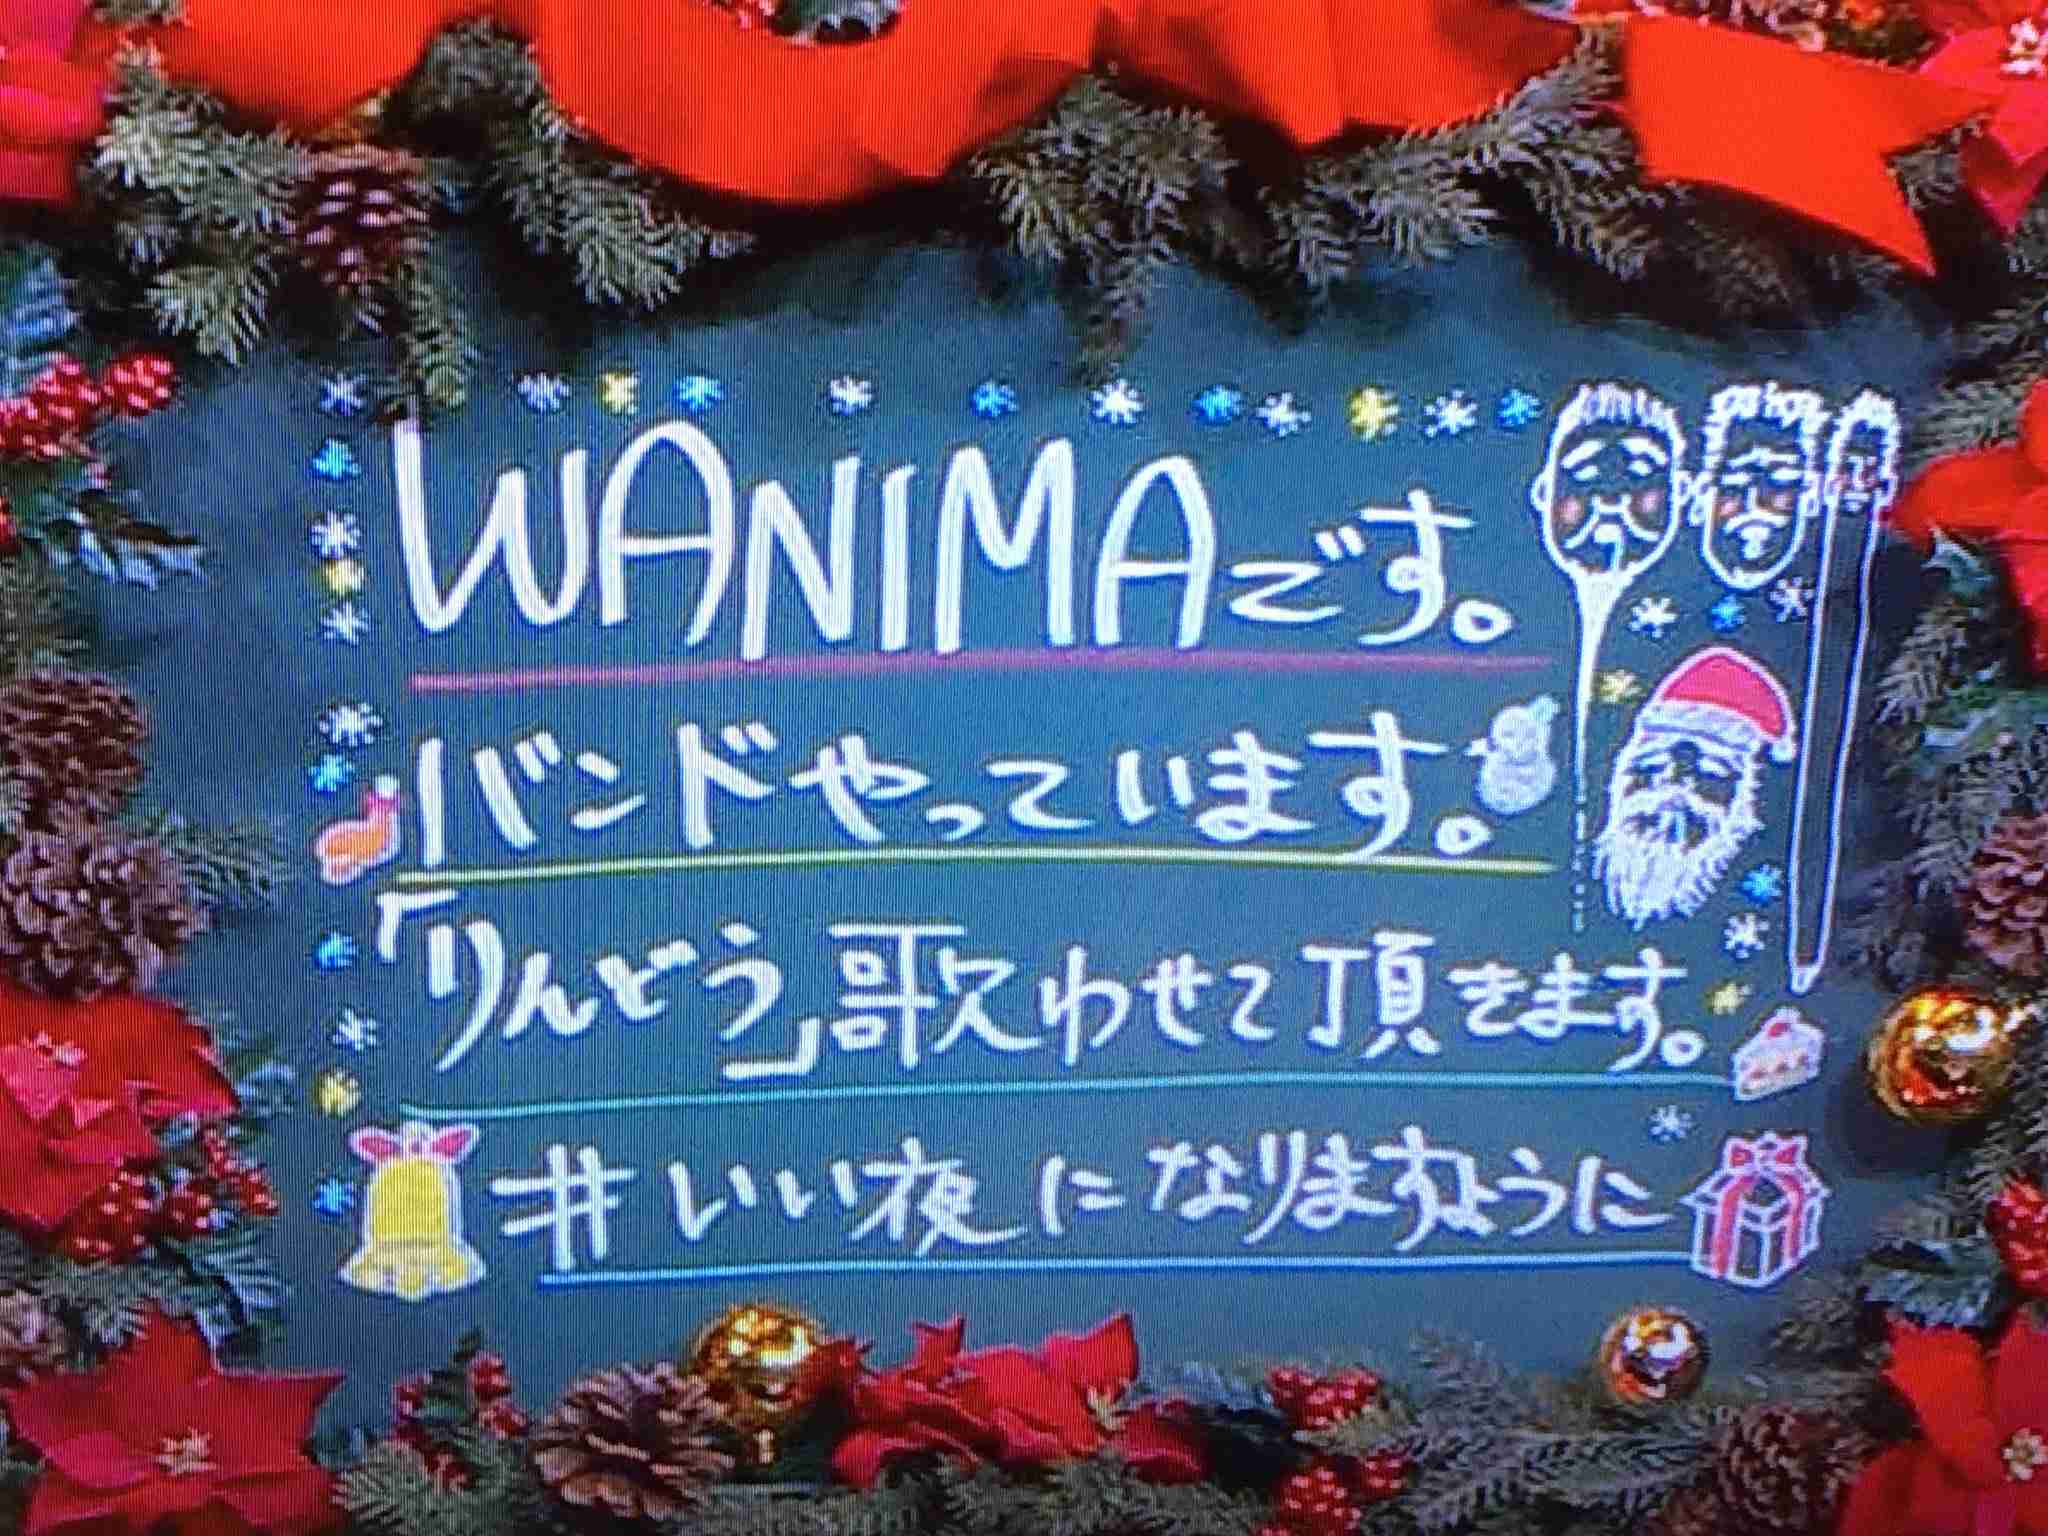 WANIMAです。
バンドやっています。
「りんどう」歌わせて頂きます。
#いい夜になりますように